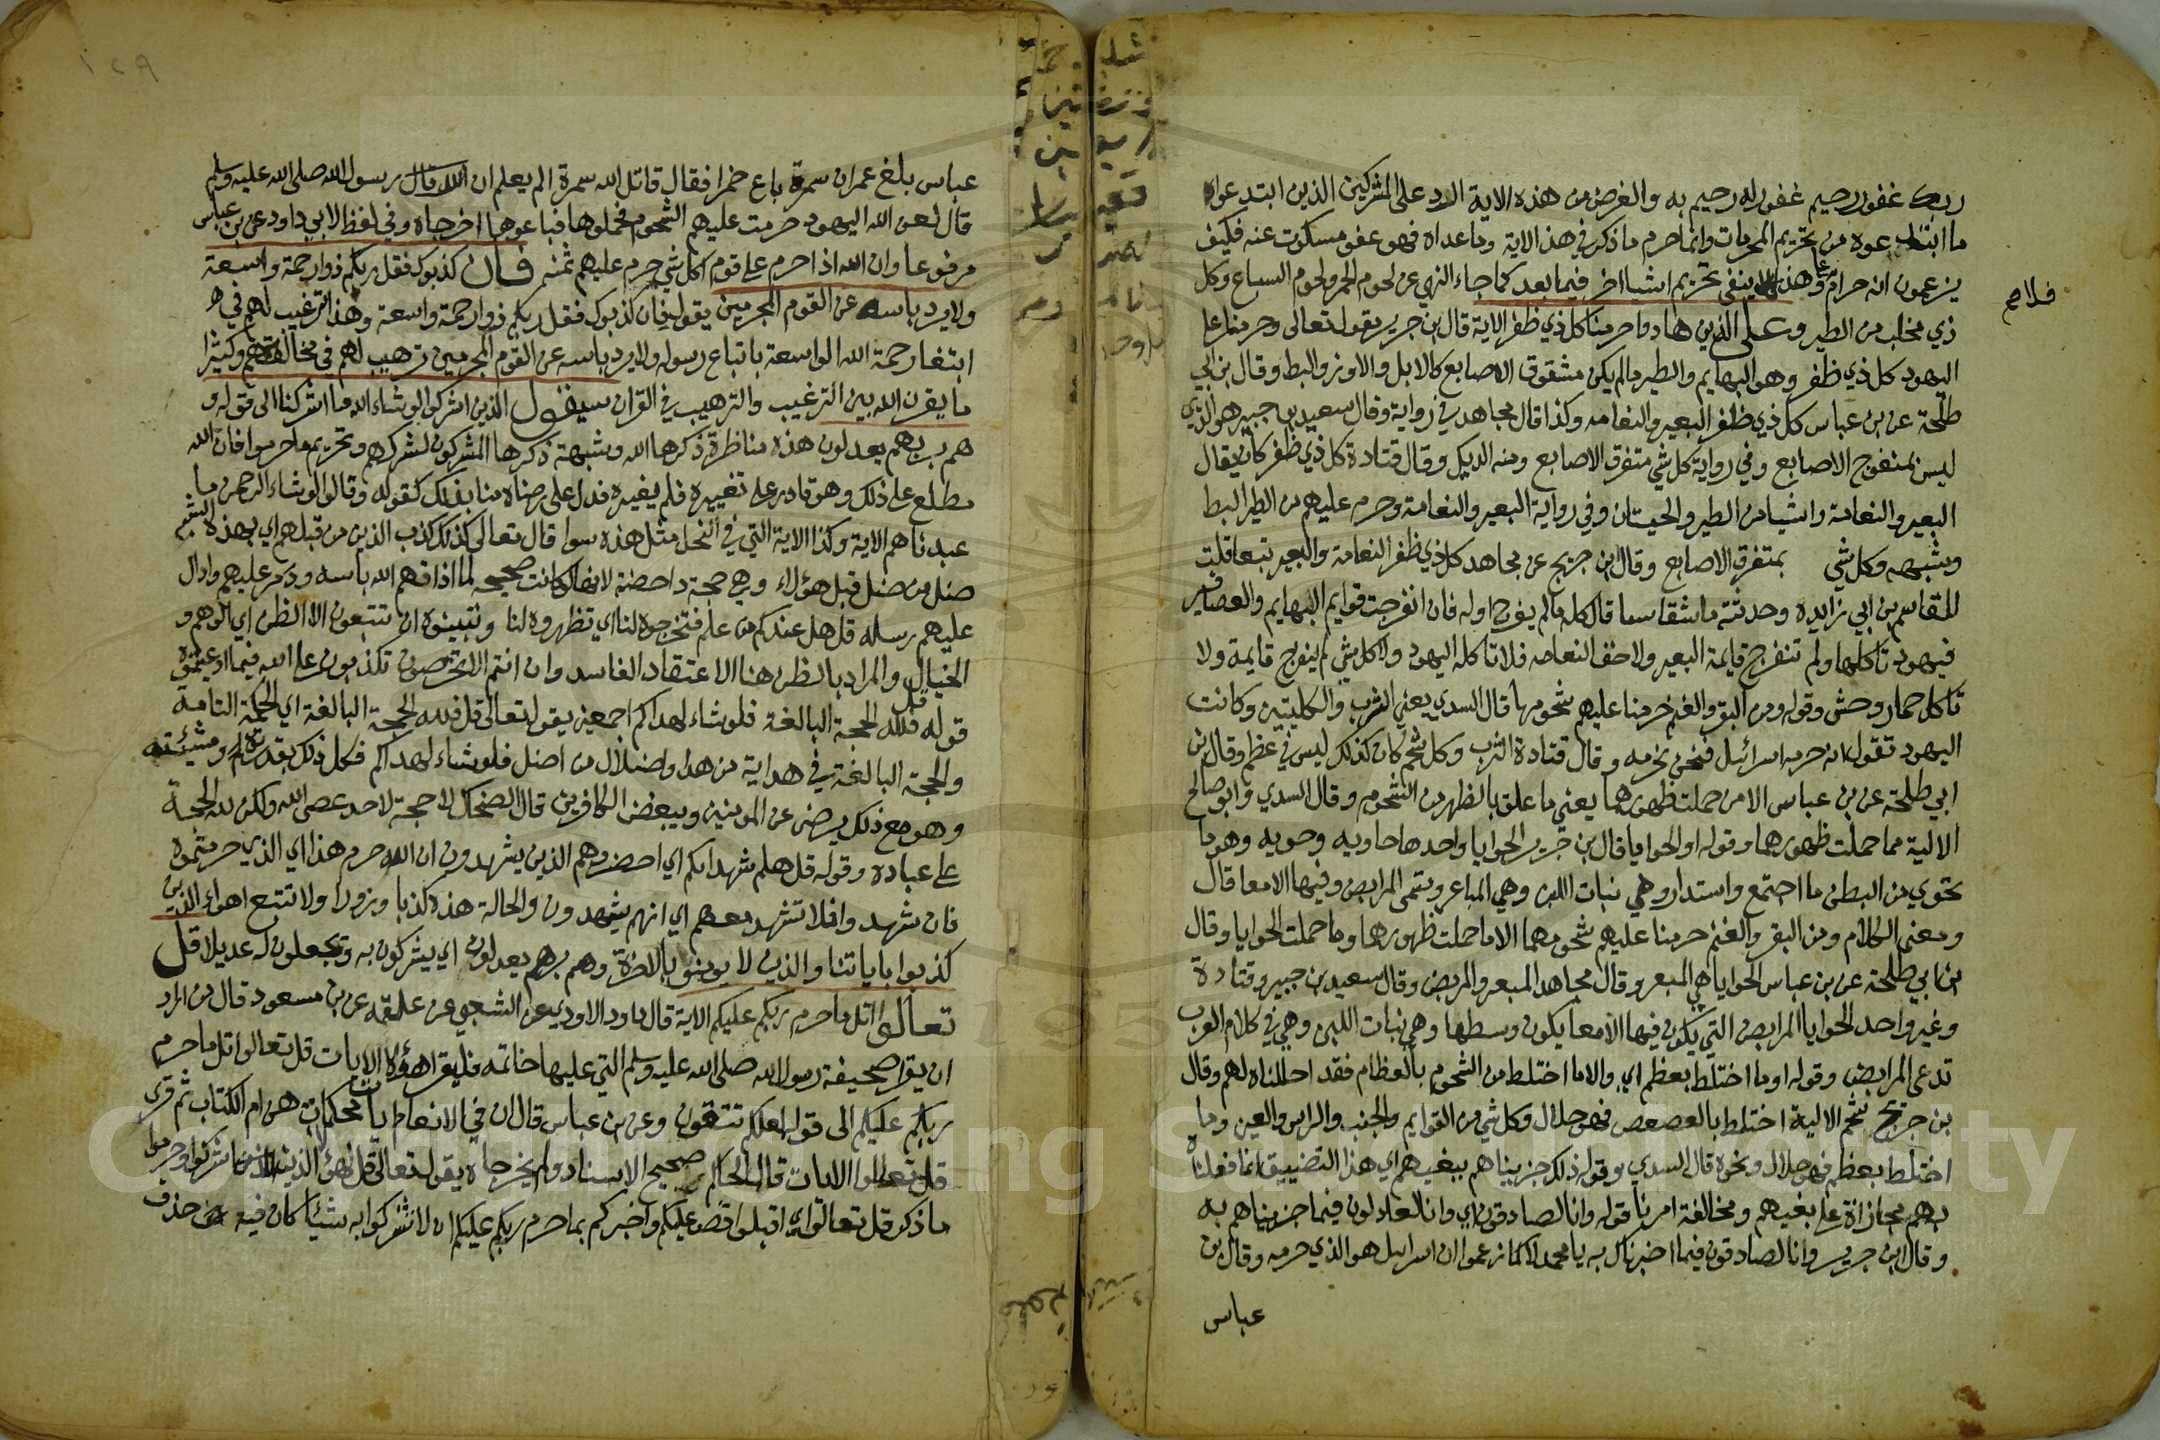 ربك غفور رحيم غفور له رحيم به والغرض من هذه الاية الرد على المشركين الذين ابتدعوا
ما ابتدعوه من تحريم المحرمات وانما حرم ما ذكر في هذ الاية وما عداه فهو عفو مسكوت عنه فكيف
يزعمون انه حرام وعلى هذا فلا ينفى تحريم اشيا اخر فيما بعد كما جاء النهي عن لحوم الحمر ولحوم السباع وكل
فلاح
ذي مخلب من الطير وعلى الذين هادوا حرمنا كل ذي ظفر الاية قال بن جرير يقول تعالى وحرمنا على
اليهود كل ذي ظفر وهو البهايم والطير ما لم يكن مشقوق الاصابع كالابل والاوز والبط وقال بن ابي
طلحة عن بن عباس كل ذي ظفر البعير والنعامه وكذا قال مجاهد في رواية وقال سعيد بن جبير هو الذي
ليس بمنفرج الاصابع وفي رواية كل شي متفرق الاصابع ومنه الديك وقال قتادة كل ذي ظفر كان يقال
البعير والنعامة واشيا من الطير والحيتان وفي رواية البعير والنعامة وحرم عليهم من الطير البط
وشبهه وكل شي بمتفرق الاصابع وقال ابن جريج عن مجاهد كل ذي ظفر النعامة والبعير تبعا قلت
للقاسم بن ابي زايده وحدثته ما شقا سا قال كلما لم يفرج اوله فان انفرجت قوايم البهايم والعصافير
فيهود تاكلها ولم تنفرج قايمة البعير ولا خف النعامه فلا تاكله اليهود ولا كل شي لم ينفرج قايمة ولا
تاكل حمار وحش وقوله ومن البقر والغنم حرمنا عليهم شحومها قال السدي يعني الثرب والكليتين وكانت
اليهود تقول انه حرمه اسرائيل فنحن نحرمه وقال قتادة الثرب وكل شحم كان كذلك ليس في عظم وقال بن
ابي طلحة عن بن عباس الا من حملت ظهورهما يعني ما علق بالظهر من الشحوم وقال السدي وابو صالح
الالية مما حملت ظهورهما وقوله او الحوايا قال بن جرير الحوايا واحدها حاويه وحويه وهو ما
تحوي من البطن ما اجتمع واستدار وهي نبات اللبن وهي المباعر وتسمى المرابض وفيها الامعا قال
ومعنى الكلام ومن البقر والغنم حرمنا عليهم شحومهما الا ما حملت ظهورهما وما حملت الحوايا وقال
بن ابي طلحة عن بن عباس الحوايا هي المبعر وقال مجاهد المبعر والمربض وقال سعيد بن جبير وقتادة
وغير واحد الحوايا المرابض التي يكون فيها الامعا يكون وسطها وهي نبات اللبن وهي في كلام العرب
تدعى المرابض وقوله او ما اختلط بعظم اي والا ما اختلط من الشحوم بالعظام فقد احللناه لهم وقال
بن جريج شحم الالية اختلط بالعصعص فهو حلال وكل شي من القوايم والجنب والراس والعين وما
اختلط بعظم فهو حلال ونحوه قال السدي وقوله ذلك جزيناهم ببغيهم اي هذا التضييق انما فعلناه
بهم مجازاة على بغيهم ومخالفة امرنا وقوله وانا لصادقون اي وانا لعادلون فيما جزيناهم به
وقال ابن جرير وانا لصادقون فيما اخبرناك به يا محمد لا كما زعموا ان اسرائيل هو الذي حرمه وقال بن
عباس
عباس بلغ عمر ان سمرة باع خمرا فقال قاتل الله سمرة الم يعلم ان رسول الله صلى الله عليه وسلم
قال لعن الله اليهود حرمت عليهم الشحوم فجملوها فباعوها اخرجاه وفي لفظ لابي داود عن بن عباس
مرفوعا وان الله اذا حرم على قوم اكل شي حرم عليهم ثمنه فان كذبوك فقل ربكم ذو رحمة واسعة
ولا يرد باسه عن القوم المجرمين يقول فان كذبوك فقل ربكم ذو رحمة واسعة وهذا ترغيب لهم في
ابتغا رحمة الله الواسعة باتباع رسوله ولا يرد باسه عن القوم المجرمين ترهيب لهم في مخالفتهم وكثيرا
ما يقرن الله بين الترغيب والترهيب في القران سيقول الذين اشركوا لو شاء الله ما اشركنا الى قوله و
هم بربهم يعدلون هذه مناظرة ذكرها الله وشبهة ذكرها المشركون لشركهم وتحريم ما حرموا فان الله
مطلع على ذلك وهو قادر على تغييره فلم يغيره فدل على رضاه منا بذلك كقوله وقالوا لو شاء الرحمن ما
عبدناهم الاية وكذا الاية التي في النحل مثل هذه سوا قال تعالى كذلك كذب الذين من قبلهم اي بهذه الشبهة
ضل من ضل قبل هؤلاء وهي حجة داحضة لانها لو كانت صحيحه لما اذاقهم الله باسه ودمر عليهم وادال
عليهم رسله قل هل عندكم من علم فتخرجوه لنا اي تظهروه لنا وتبينوه ان تتبعون الا الظن اي الوهم و
الخيال والمراد بالظن هنا الاعتقاد الفاسد وان انتم الا تخرصون تكذبون على الله فيما ادعيتموه
قوله قل فلله الحجة البالغة فلو شاء لهداكم اجمعين يقول تعالى قل فلله الحجة البالغة اي الحكمة التامة
والحجة البالغة في هداية من هدا واضلال من اضل فلو شاء لهداكم فكل ذلك بقدرته ومشيئته
وهو مع ذلك يرضى عن المومنين ويبغض الكافرين قال الضحاك لا حجة لاحد عصى الله ولكن لله الحجة
على عباده وقوله قل هلم شهداكم اي احضروهم الذين يشهدون ان الله حرم هذا اي الذي حرمتموه
فان شهدوا فلا تشهد معهم اي انهم يشهدون والحالة هذه كذبا وزورا ولا تتبع اهواء الذين
كذبوا باياتنا والذين لا يومنون بالاخرة وهم بربهم يعدلون اي يشركون به ويجعلون له عديلا قل
تعالوا اتل ما حرم ربكم عليكم الاية قال داود الاودي عن الشعبي عن علقمه عن بن مسعود قال من اراد
ان يقرا صحيفة رسول الله صلى الله عليه وسلم التي عليها خاتمه فليقرا هؤلاء الايات قل تعالوا اتل ما حرم
ربكم عليكم الى قوله لعلكم تتقون وعن بن عباس قال ان في الانعام ايات محكمات هن ام الكتاب ثم قرى
قل تعالوا الايات قال الحاكم صحيح الاسناد ولم يخرجاه يقول تعالى قل لهؤلاء الذين اشركوا وحرموا
ما ذكر قل تعالوا اي اقبلوا اقص عليكم واخبركم بما حرم ربكم عليكم ان لا تشركوا به شيئا كان فيه حذف
Cheng Society